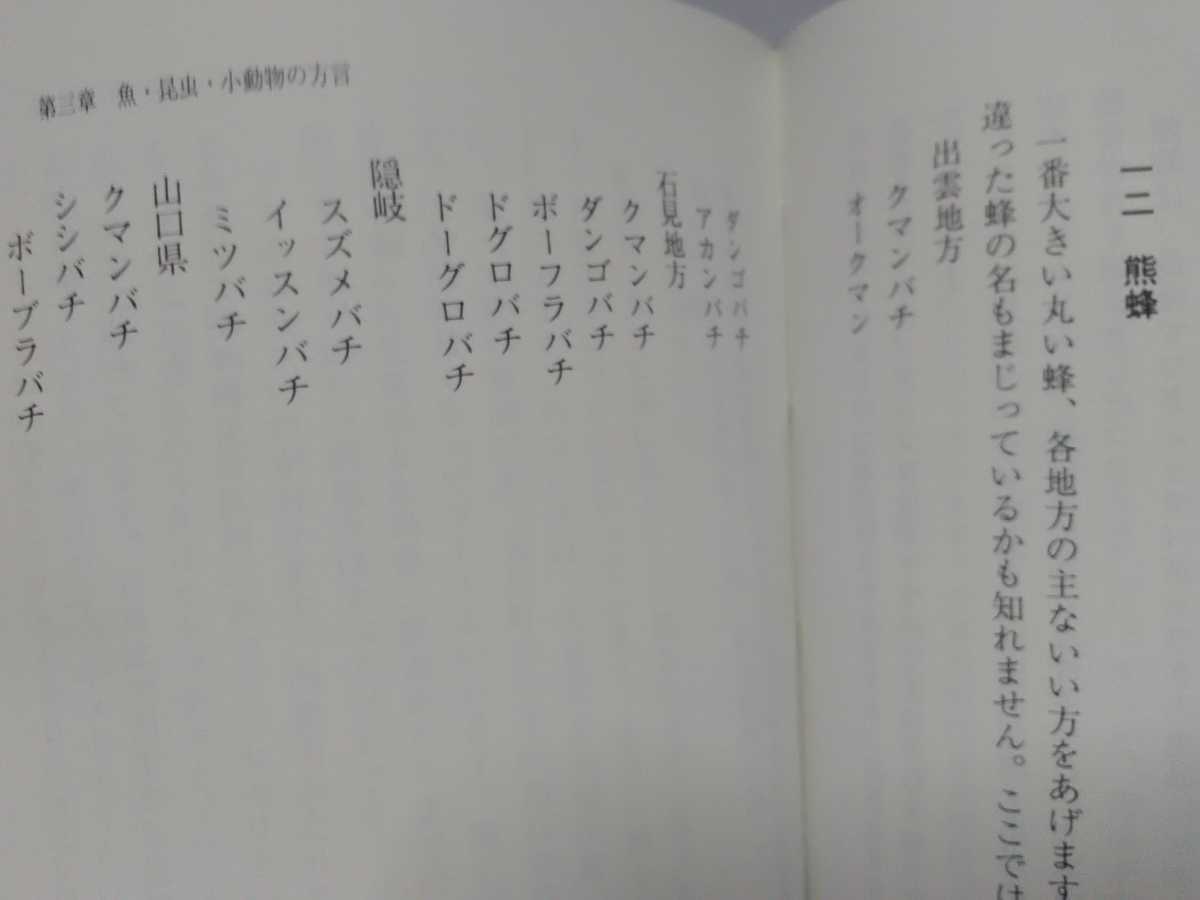 一二　熊蜂
一番大きい丸い蜂、各地方の主ないい方をあげます
違った蜂の名もまじっているかも知れません。ここでは
出雲地方
クマンバチ
オークマン
ダンゴバチ
アカンバチ
石見地方
クマンバチ
ダンゴバチ
ボーフラバチ
ドグロバチ
ドーグロバチ
隠岐
スズメバチ
イッスンバチ
ミツバチ
山口県
クマンバチ
シシバチ
ボーブラバチ
第三章　魚・昆虫・小動物の方言